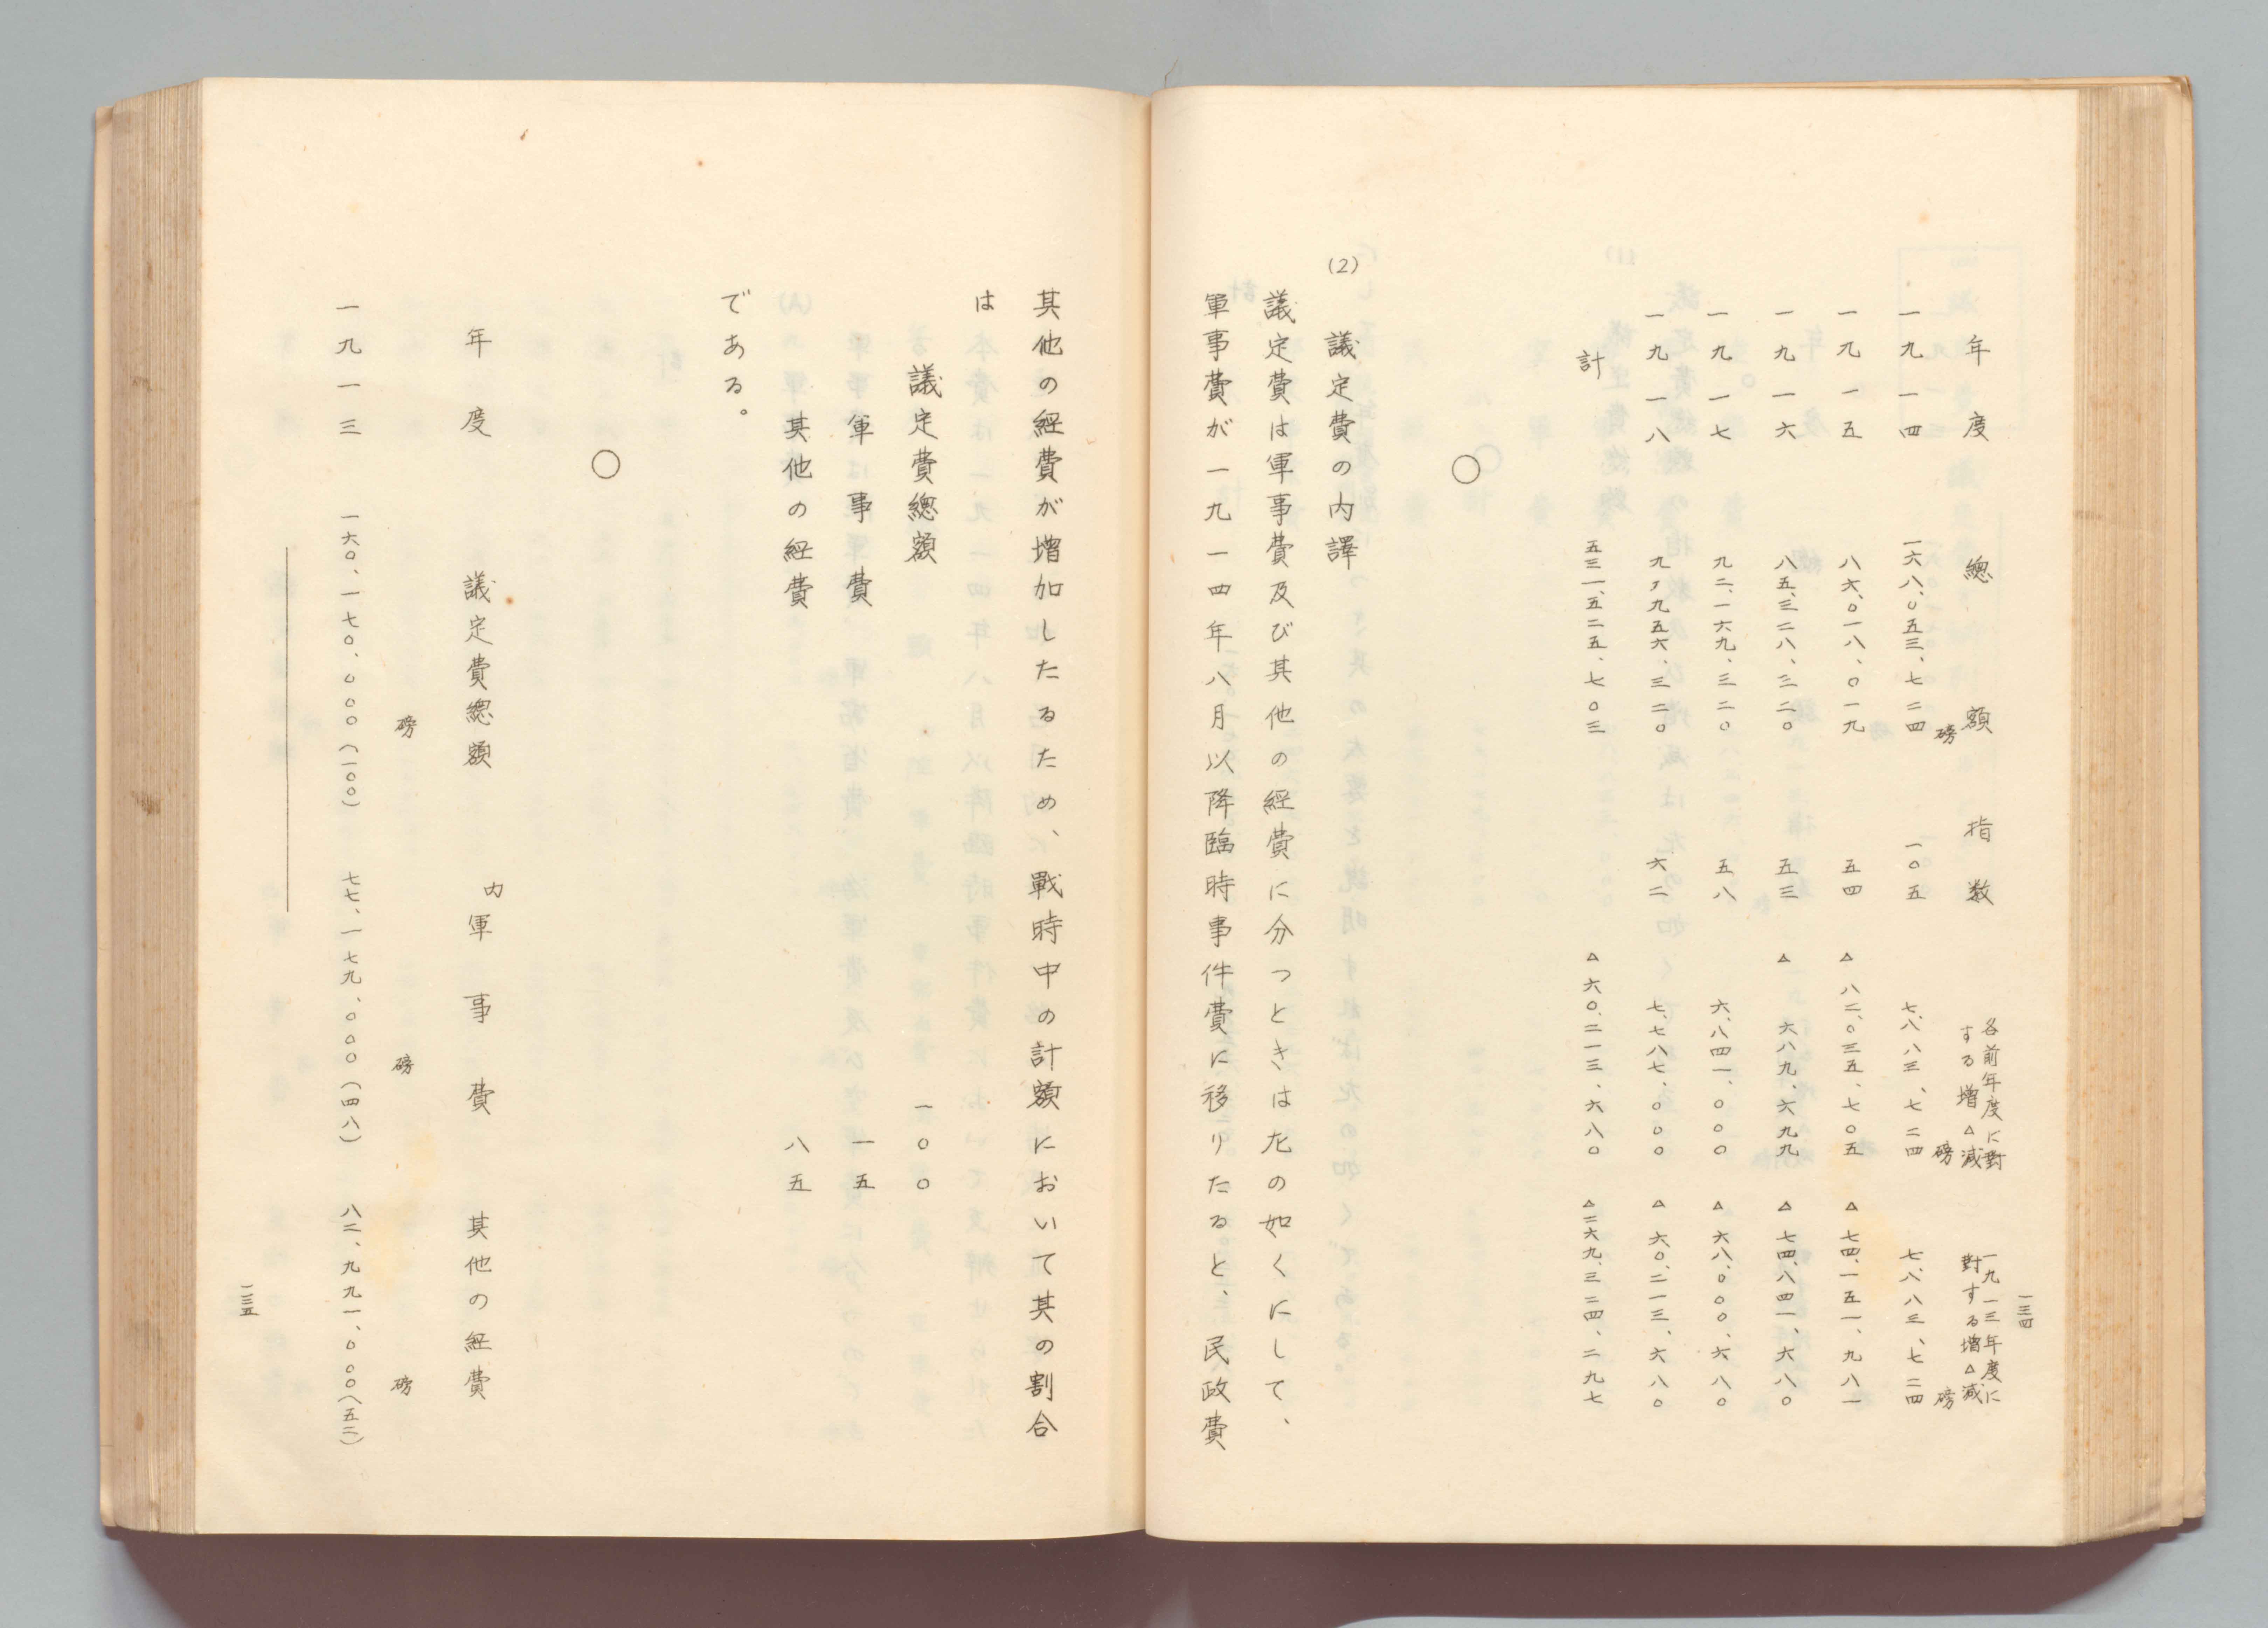 一三四
年度 總額 指数 各前年度に對する増△減 一九一三年度に對する増△減
磅 磅 磅
一九一四 一六八、〇五三、七二四 一〇五 七、八八三、七二四 七、八八三、七二四
一九一五 八六、〇一八、〇一九 五四 △八二、〇三五、七〇五 △七四、一五一、九八一
一九一六 八五、三二八、三二〇 五三 △六八九、六九九 △七四、八四一、六八〇
一九一七 九二、一六九、三二〇 五八 六、八四一、〇〇〇 △六八、〇〇〇、六八〇
一九一八 九九、九五六、三二〇 六二 七、七八七、〇〇〇 △六〇、二一三、六八〇
計 五三一、五二五、七〇三 △六〇、二一三、六八〇 △二六九、三二四、二九七
○
(2) 議定費の内譯
議定費は軍事費及び其他の經費に分つときは左の如くにして、
軍事費が一九一四年八月以降臨時事件費に移りたると、民政費
其他の経費が増加したるため、戰時中の計額において其の割合
は
議定費總額 一〇〇
軍事費 一五
其他の経費 八五
である。
○
年度 議定費總額 内軍事費 其他の経費
磅 磅 磅
一九一三 一六〇、一七〇、〇〇〇(一〇〇) 七七、一七九、〇〇〇(四八) 八二、九九一、〇〇〇(五二)
一三五